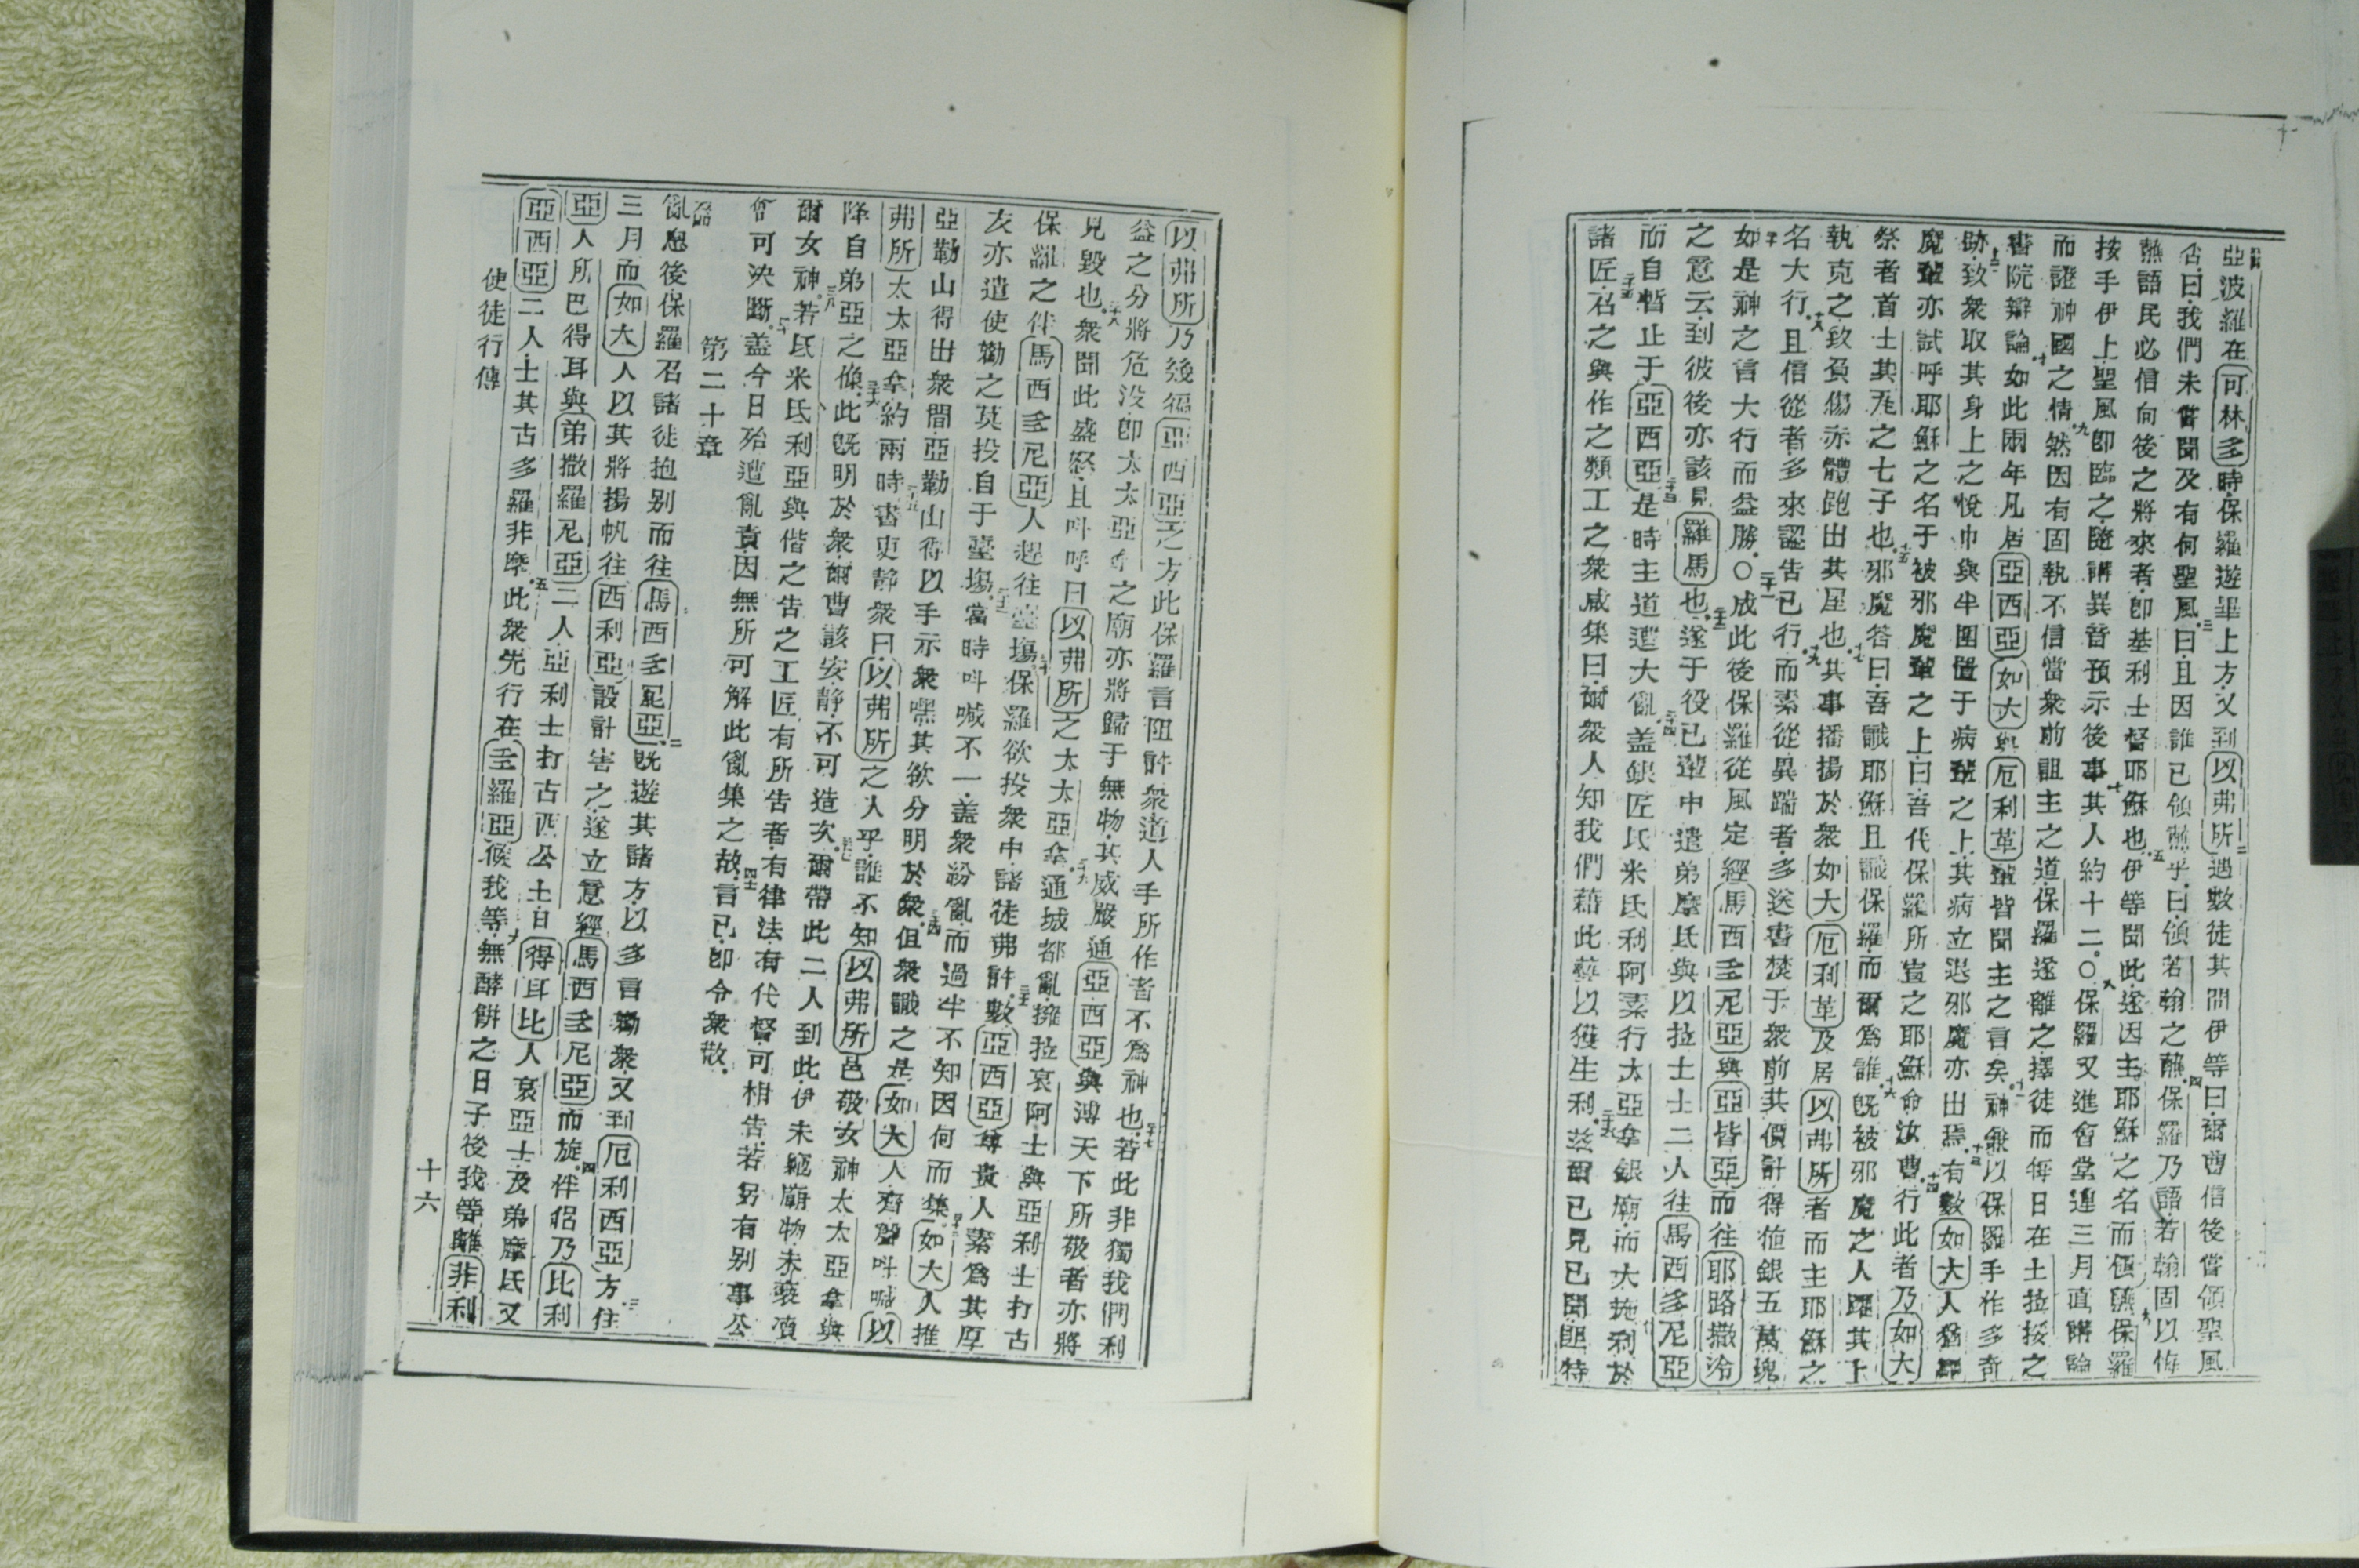 亞波羅在可林多時保羅遊畢上方又到以弗所遇數徒其間伊等曰爾曹信後嘗領聖風
否曰我們未嘗聞及有何聖風三曰且因誰已領蘸乎曰領若翰之蘸四保羅乃語若翰固以悔
蘸語民必信向後之將來者卽基利士督耶穌也五伊等聞此遂因主耶穌之名而領蘸保羅
按手伊上聖風卽臨之隨講異音預示後事其人約十二〇八保羅又進會堂連三月直講論
而證神國之情九然因有固執不信當衆前詛主之道保羅遂離之擇徒而每日在士拉挼之
書院辯論十如此兩年凡居亞西亞如大與厄利革輩皆聞主之言矣十一神無以保羅手作多奇
跡致衆取其身上之帨巾與半圍置于病輩之上其病立退邪魔亦出焉十三有數如大人猶
魔輩亦試呼耶穌之名于被邪魔輩之上曰吾代保羅所豈之耶穌命汝曹十四行此者乃如大
祭者首士其瓦之七子也十五邪魔答曰吾識耶穌且識保羅而爾爲誰十六旣被邪魔之人躍其上
執克之致負傷赤體跑出其屋也十七其事播揚於衆如大厄利革及居以弗所者而主耶穌之
名大行十八且信從者多來認告已行十九而素從異踹者多送書焚于衆前其價計得値銀五萬塊
如是神之言大行而益勝〇成此後保羅從風定經馬西多尼亞與亞皆亞而往耶路撒冷
之意云到彼後亦該見羅馬也遂于役已輩中遣弟摩氐與以拉士士二人往馬西多尼亞
而自暫止于亞西亞是時主道遭大亂蓋銀匠氐米氐利阿素行太亞拿銀廟而大施利於
諸匠召之與作之類工之衆咸集曰爾衆人知我們藉此藝以獲生利茲爾已見已聞
以弗所乃幾徧亞西亞之方此保羅言阻許衆道人手所作者不爲神也若此非獨我們利
益之分將危没卽太太亞拿之廟亦將歸于無物其威嚴通亞西亞與溥天下所敬者亦將
見毀也衆聞此盛怒且呌呼曰以弗所之太太亞拿通城都亂擁拉哀阿士與亞利士打古
保羅之伴馬西多尼亞人趕往臺塲保羅欲投衆中諸徒弗許數亞西亞尊貴人素爲其厚
友亦遣使勸之莫投自于臺塲當時呌喊不一蓋衆紛亂而過半不知因何而集如大人推
亞勒山得出衆間亞勒山得以手示衆嘿其欲分明於衆但衆識之是如大人齊聲呌喊以
弗所太太亞拿約兩時書吏靜衆曰以弗所之人乎誰不知以弗所邑敬女神太太亞拿與
降自弟亞之像此旣明於衆爾曹該安靜不可造次爾帶此二人到此伊未竊廟物未褻瀆
爾女神若氐米氐利亞與偕之告之工匠有所告者有律法有代督可相告若另有别事公
會可決斷蓋今日殆遭亂責因無所可解此亂集之故言已卽令衆散
第二十章
亂息後保羅召諸徒抱别而往馬西多尼亞二旣遊其諸方以多言勸衆又到厄利西亞方住
三月而如大人以其將揚帆往西利亞設計害之遂立意經馬西多尼亞而旋四伴侶乃比利
亞人所巴得耳與弟撒羅尼亞二人亞利士打古西公士曰得耳比人哀亞士及弟摩氐又
亞西亞二人士其古多羅非摩五此衆先行在多羅亞候我等無酵餅之日子後我等離非利
使徒行傳
十六